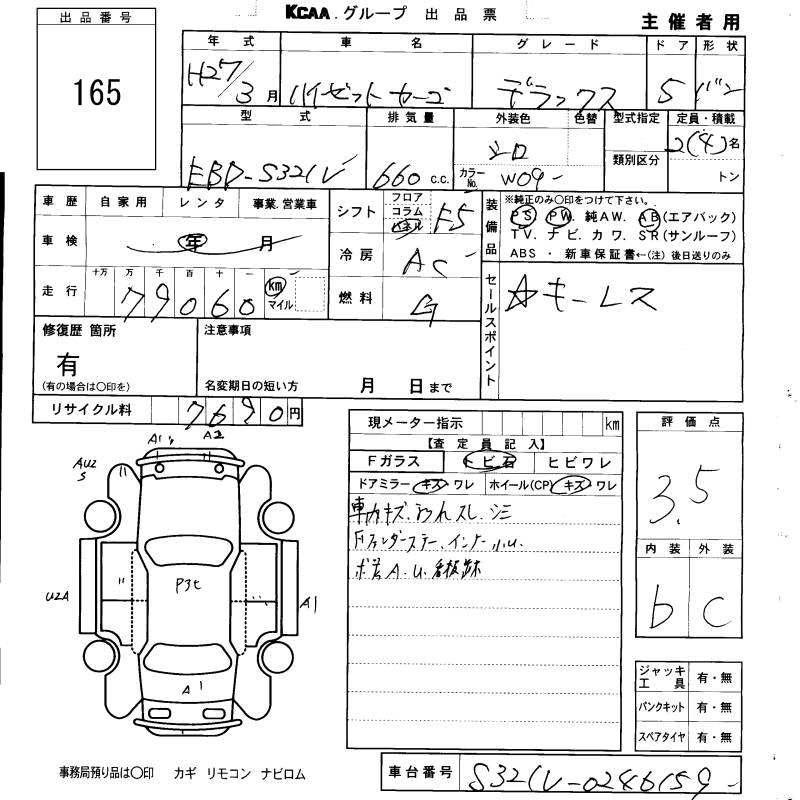 KCAA.グループ 出品票
主催者用
出品番号
165
年式 車名 グレード ドア 形状
H27/3月 ハイゼットカーゴ デラックス 5 バン
型式 排気量 外装色 色替 型式指定 定員・積載
EBD-S321V 660c.c. シロ 類別区分 2(4)名
カラーNo. W09- トン
車歴 自家用 レンタ 事業.営業車
シフト フロア コラム パネル F5
装備品 ※純正のみ○印をつけて下さい。
PS. PW. 純AW. AB(エアバック)
TV. ナビ. カワ. SR(サンルーフ)
ABS ・ 新車保証書←(注)後日送りのみ
車検 年 月
冷房 AC
走行 十万 万 千 百 十 一
79060 km マイル
燃料 G
セールスポイント ☆キーレス
修復歴 箇所 注意事項
有
(有の場合は○印を) 名変期日の短い方 月 日まで
リサイクル料 7690円
現メーター指示 km
評価点
3.5
【査定員記入】
Fガラス トビ石 ヒビワレ
ドアミラー キズ・ワレ ホイール(CP) キズ・ワレ
車内キズ.よごれスレ.シミ
Fフェンダーステー.インナー小U.
ボ芯A.U.看板跡
内装 外装
b C
A1 A2
AU2
S
P3t
U2A
A1
A1
ジャッキ工具 有・無
パンクキット 有・無
スペアタイヤ 有・無
事務局預り品は○印 カギ リモコン ナビロム
車台番号 S321V-0246159-